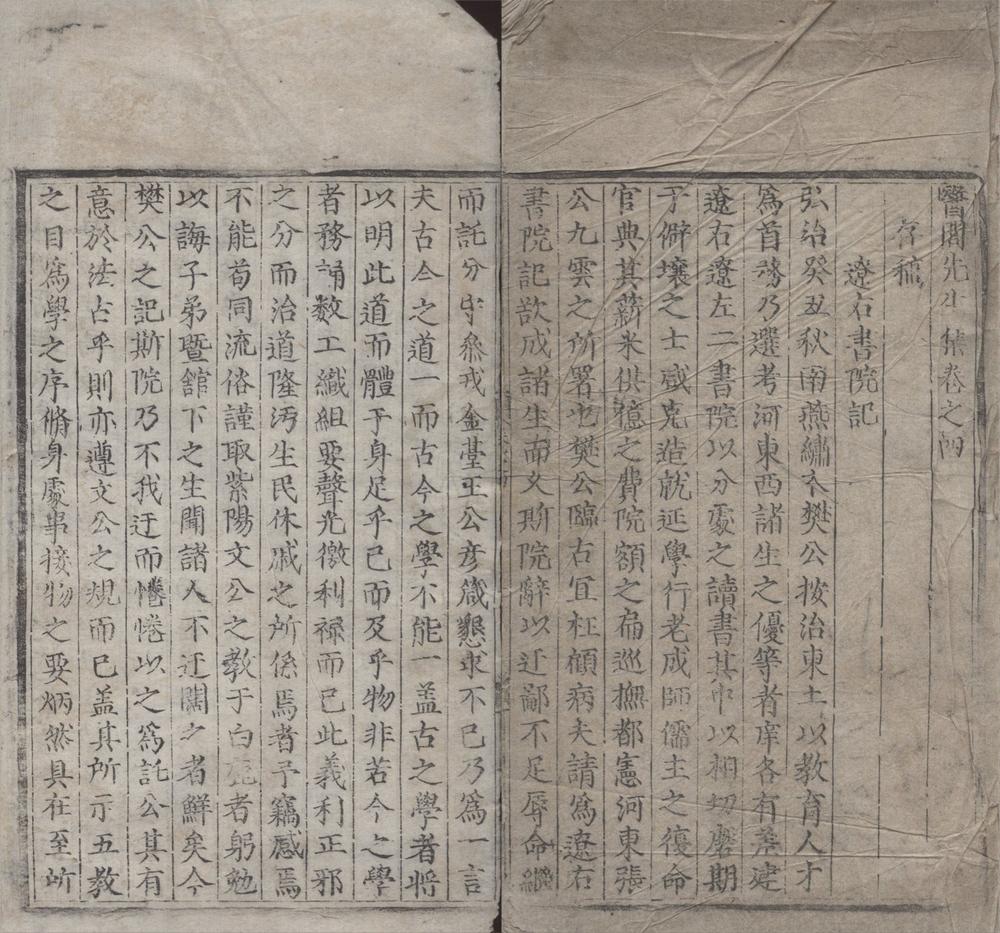 醫閭先生集卷之四
存稿
遼右書院記
弘治癸丑秋南燕繡衣樊公按治東土以教育人才
爲首務乃選考河東西諸生之優等者庠各有差建
遼右遼左二書院以分處之讀書其中以相切磨期
于僻壤之士咸克造就延學行老成師儒主之復命
官典其薪米供億之費院額之扁巡撫都憲河東張
公九雲之所署也樊公臨右宜枉顧病夫請爲遼右
書院記欲成諸生而文斯院辭以迂鄙不足辱命繼
而託分守叅戎金臺王公彦箴懇求不已乃爲一言
夫古今之道一而古今之學不能一盖古之學者將
以明此道而體于身足乎已而及乎物非若今之學
者務誦数工織組要聲光徼利禄而已此義利正邪
之分而治道隆汚生民休戚之所係焉者予竊感焉
不能苟同流俗謹取紫陽文公之教于白鹿者躬勉
以誨子弟暨舘下之生聞諸人不迂闊之者鮮矣今
樊公之記斯院乃不我迂而惓惓以之爲託公其有
意於法古乎則亦遵文公之規而已盖其所示五教
之目爲學之序脩身處事接物之要炳然具在至於